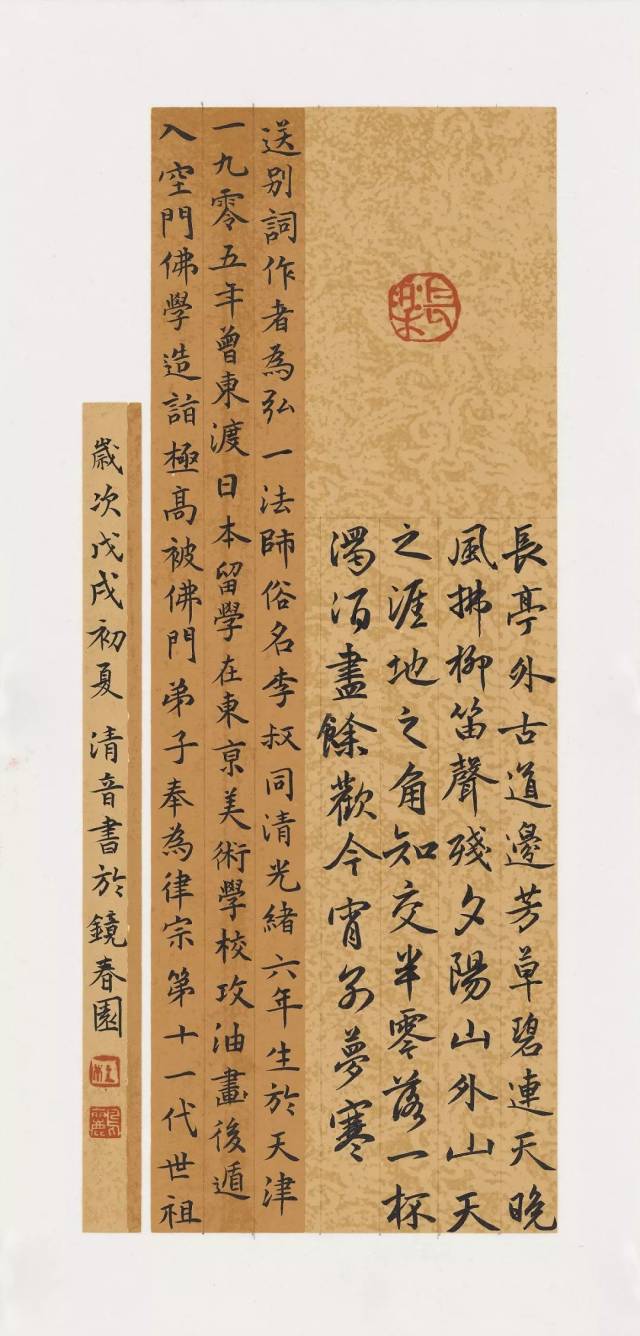 長亭外古道邊芳草碧連天晚
風拂柳笛聲殘夕陽山外山天
之涯地之角知交半零落一杯
濁酒盡餘歡今宵別夢寒
送別詞作者為弘一法師俗名李叔同清光緒六年生於天津
一九零五年曾東渡日本留學在東京美術學校攻油畫後遁
入空門佛學造詣極高被佛門弟子奉為律宗第十一代世祖
歲次戊戌初夏 清音書於鏡春園